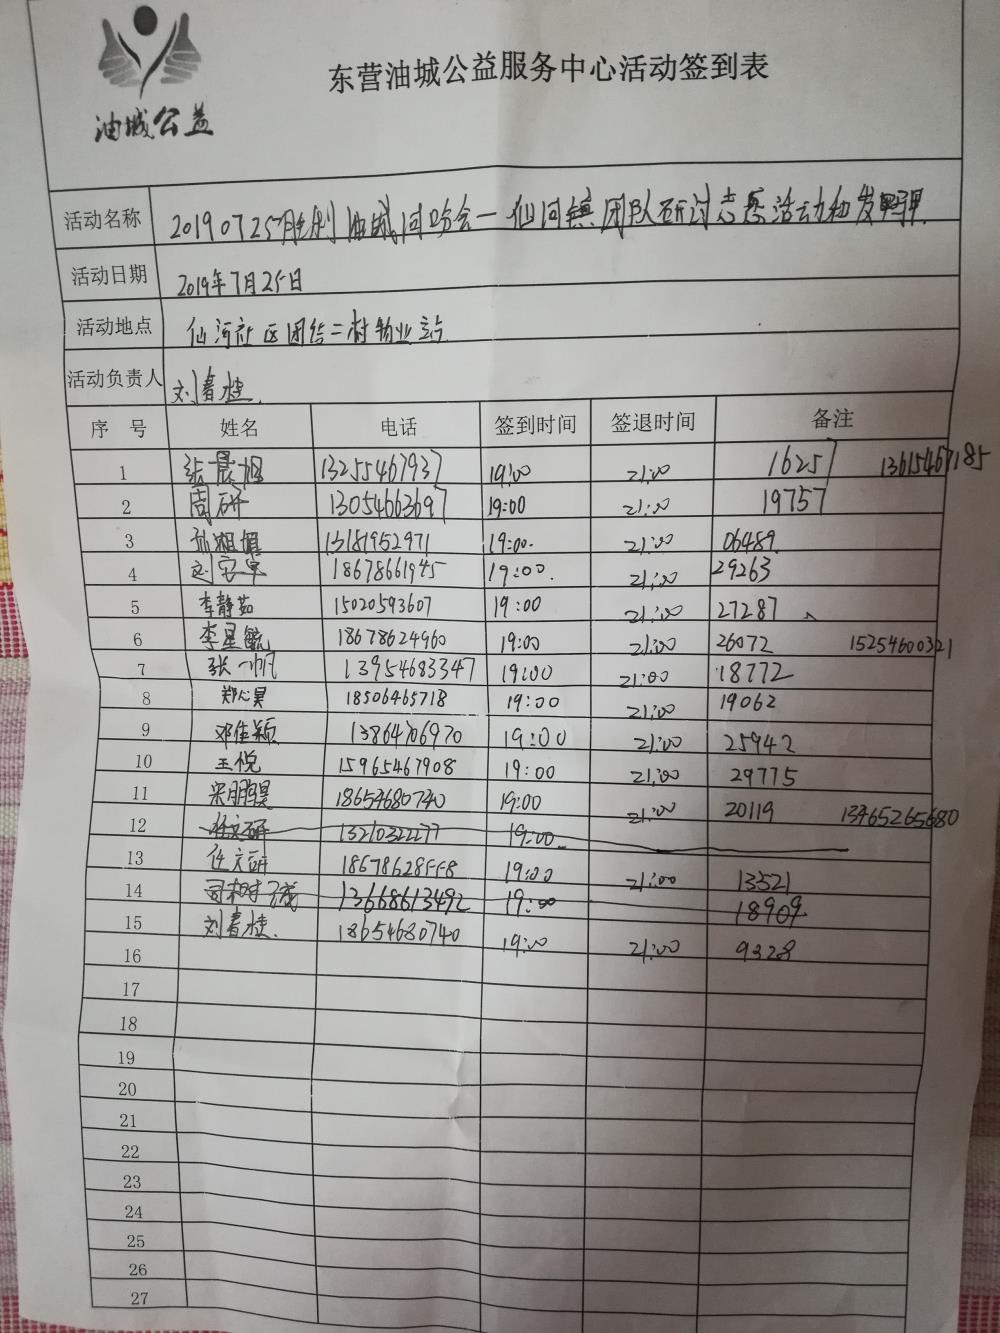 油城公益
东营油城公益服务中心活动签到表
活动名称 20190725胜利油城 一仙河镇团队研讨志愿活动和发
活动日期 2019年7月25日
活动地点 仙河社区团结二村物业站
活动负责人 刘春桂.
序 号 姓名 电话 签到时间 签退时间 备注
1 张晨旭 13255467937 19:00 21:00 1625 13615467185
2 周研 13054663697 19:00 21:00 19757
3 13181952971 19:00. 21:00 06489
4 18678661945 19:00. 21:00 29263
5 李静茹 15020593607 19:00 21:00 27287
6 李星毓 18678624960 19:00 21:00 26072 15254600321
7 张一帆 13954683347 19:00 21:00 18772
8 郑心昊 18506465718 19:00 21:00 19062
9 邓佳颖 13864706970 19:00 21:00 25942
10 王悦 15965467908 19:00 21:00 29775
11 宋鹏昊 18654680740 19:00 21:00 20119 13465265680
12 任文研 13210322277 19:00
13 任文研 18678628558 19:00 21:00 13521
14 13668613492 19:00 18909
15 刘春桂. 18654680740 19:00 21:00 9328
16
17
18
19
20
21
22
23
24
25
26
27